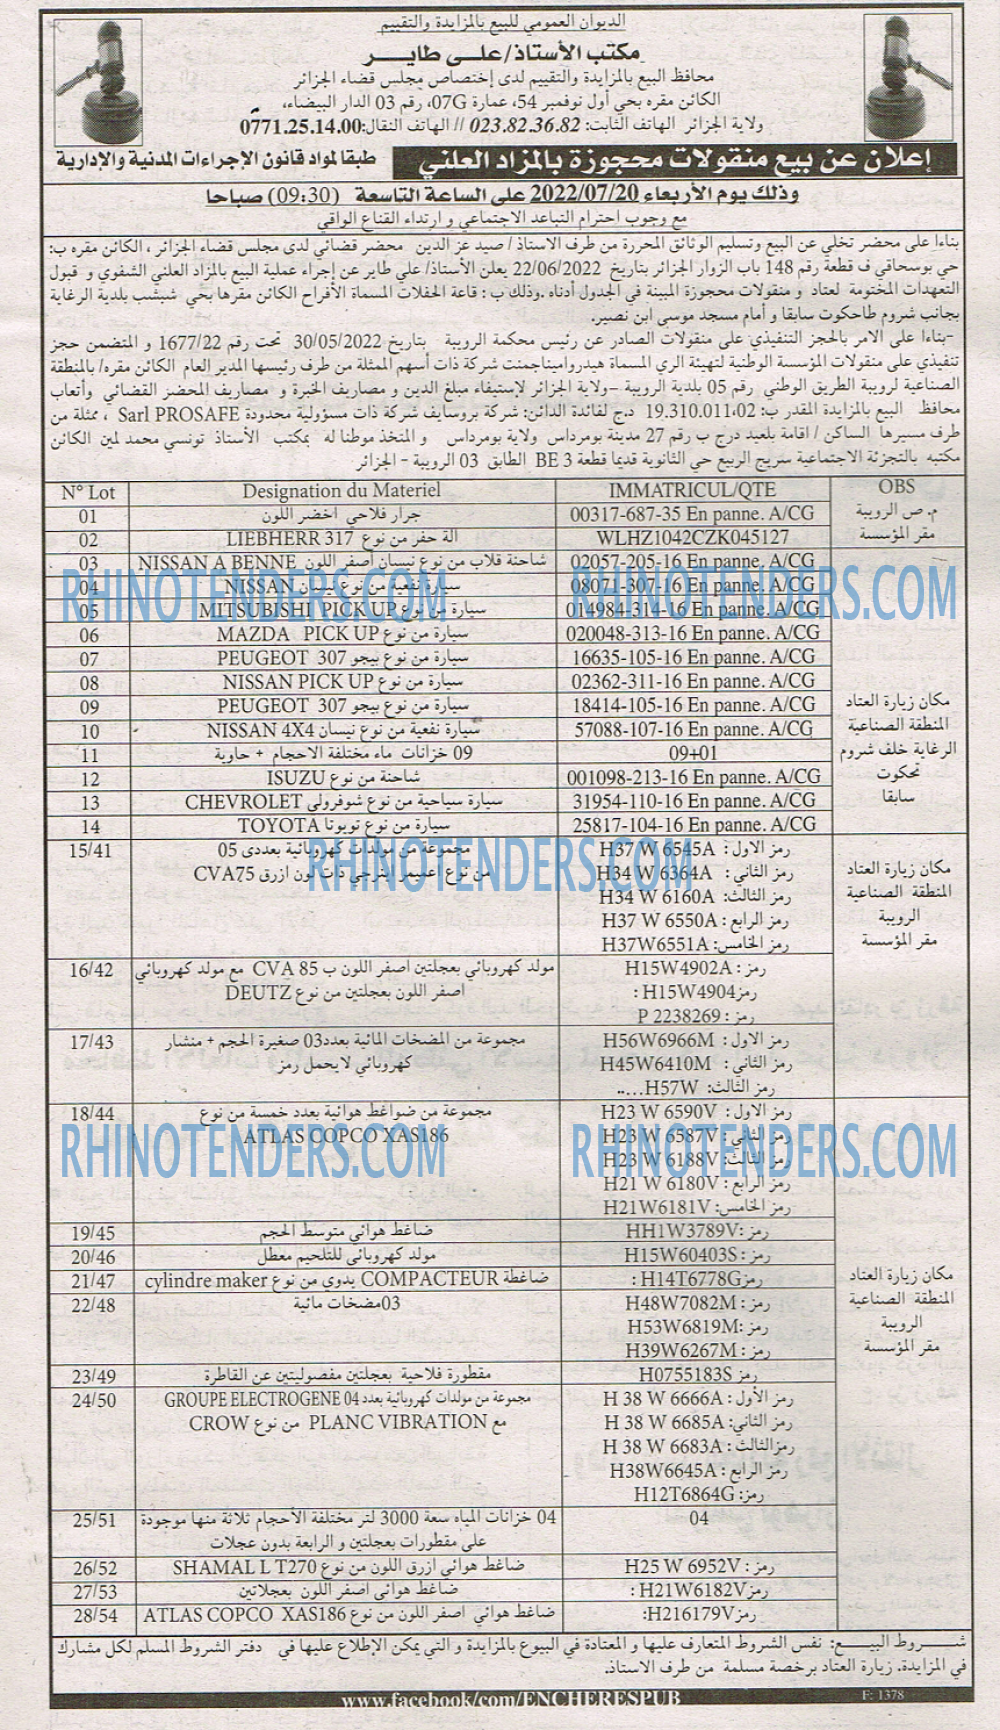 الديوان العمومي للبيع بالمزايدة والتقييم
مكتب الأستاذ/علي طاير
محافظ البيع بالمزايدة والتقييم لدى إختصاص مجلس قضاء الجزائر
الكائن مقره بحي أول نوفمبر 54، عمارة 07G، رقم 03 الدار البيضاء،
ولاية الجزائر الهاتف الثابت: 023.82.36.82 // الهاتف النقال:0771.25.14.00
إعلان عن بيع منقولات محجوزة بالمزاد العلني طبقا لمواد قانون الإجراءات المدنية والإدارية
وذلك يوم الأربعاء 2022/07/20 على الساعة التاسعة (09:30) صباحا
مع وجوب احترام التباعد الاجتماعي و ارتداء القناع الواقي
بناءا على محضر تخلي عن البيع وتسليم الوثائق المحررة من طرف الاستاذ/ صيد عز الدين محضر قضائي لدى مجلس قضاء الجزائر، الكائن مقره ب:
حي بوسحاقي ف قطعة رقم 148 باب الزوار الجزائر بتاريخ 22/06/2022 يعلن الأستاذ/ علي طاير عن إجراء عملية البيع بالمزاد العلني الشفوي و قبول
التعهدات المختومة لعتاد و منقولات محجوزة المبينة في الجدول أدناه .وذلك ب: قاعة الحفلات المسماة الأفراح الكائن مقرها بحي شبشب بلدية الرغاية
بجانب شروم طاحكوت سابقا و أمام مسجد موسى ابن نصير.
-بناءا على الامر بالحجز التنفيذي على منقولات الصادر عن رئيس محكمة الرويبة بتاريخ 30/05/2022 تحت رقم 1677/22 و المتضمن حجز
تنفيذي على منقولات المؤسسة الوطنية لتهيئة الري المسماة هيدرواميناجمنت شركة ذات أسهم الممثلة من طرف رئيسها المدير العام الكائن مقره/ بالمنطقة
الصناعية لرويبة الطريق الوطني رقم 05 بلدية الرويبة – ولاية الجزائر لإستيفاء مبلغ الدين و مصاريف الخبرة و مصاريف المحضر القضائي وأتعاب
محافظ البيع بالمزايدة المقدر ب: 19.310.011،02 د.ج لفائدة الدائن: شركة بروسايف شركة ذات مسؤولية محدودة Sarl PROSAFE ، ممثلة من
طرف مسيرها الساكن / اقامة بلعيد درج ب رقم 27 مدينة بومرداس ولاية بومرداس و المتخذ موطنا له بمكتب الأستاذ تونسي محمد لمين الكائن
مكتبه بالتجزئة الاجتماعية سريج الربيع حي الثانوية قديما قطعة BE 3 الطابق 03 الرويبة – الجزائر
N° Lot Designation du Materiel IMMATRICUL/QTE OBS
01 جرار فلاحي اخضر اللون 00317-687-35 En panne. A/CG م.ص الرويبة
02 الة حفر من نوع LIEBHERR 317 WLHZ1042CZK045127 مقر المؤسسة
03 شاحنة قلاب من نوع نيسان أصفر اللون NISSAN A BENNE 02057-205-16 En panne. A/CG
04 سيارة نفعية من نوع نيسان NISSAN 08071-307-16 En panne. A/CG
05 سيارة من نوع MITSUBISHI PICK UP 014984-314-16 En panne. A/CG
06 سيارة من نوع MAZDA PICK UP 020048-313-16 En panne. A/CG
07 سيارة من نوع بيجو PEUGEOT 307 16635-105-16 En panne. A/CG
08 سيارة من نوع NISSAN PICK UP 02362-311-16 En panne. A/CG
09 سيارة من نوع بيجو PEUGEOT 307 18414-105-16 En panne. A/CG مكان زيارة العتاد
10 سيارة نفعية من نوع نيسان NISSAN 4X4 57088-107-16 En panne. A/CG المنطقة الصناعية
11 09 خزانات ماء مختلفة الاحجام + حاوية 09+01 الرغاية خلف شروم
12 شاحنة من نوع ISUZU 001098-213-16 En panne. A/CG تحكوت
13 سيارة سياحية من نوع شوفرولي CHEVROLET 31954-110-16 En panne. A/CG سابقا
14 سيارة من نوع تويوتا TOYOTA 25817-104-16 En panne. A/CG
15/41 مجموعة من مولدات كهربائية بعددى 05 رمز الاول : H37 W 6545A مكان زيارة العتاد
من نوع اعميمر اينرجي ذات لون ازرق CVA75 رمز الثاني : H34 W 6364A المنطقة الصناعية
رمز الثالث: H34 W 6160A الرويبة
رمز الرابع : H37 W 6550A مقر المؤسسة
رمز الخامس: H37W6551A
16/42 مولد كهروبائي بعجلتين اصفر اللون ب CVA 85 مع مولد كهروبائي رمز : H15W4902A
اصفر اللون بعجلتين من نوع DEUTZ رمزH15W4904 :
رمز : P 2238269
17/43 مجموعة من المضخات المائية بعدد03 صغيرة الحجم + منشار رمز الاول : H56W6966M
كهروبائي لا يحمل رمز رمز الثاني : H45W6410M
رمز الثالث: H57W…..
18/44 مجموعة من ضواغط هوائية بعدد خمسة من نوع رمز الاول : H23 W 6590V
ATLAS COPCO XAS186 رمز الثاني : H23 W 6587V
رمز الثالث: H23 W 6188V
رمز الرابع : H21 W 6180V
رمز الخامس: H21W6181V
19/45 ضاغط هوائي متوسط الحجم رمز :HH1W3789V
20/46 مولد كهروبائي للتلحيم معطل رمز : H15W60403S
21/47 ضاغطة COMPACTEUR يدوي من نوع cylindre maker رمزH14T6778G : مكان زيارة العتاد
22/48 03مضخات مائية رمز : H48W7082M المنطقة الصناعية
رمز :H53W6819M الرويبة
رمز : H39W6267M مقر المؤسسة
23/49 مقطورة فلاحية بعجلتين مفصوليتين عن القاطرة رمز : H0755183S
24/50 مجموعة من مولدات كهروبائية بعدد 04 GROUPE ELECTROGENE رمز الأول : H 38 W 6666A
مع PLANC VIBRATION من نوع CROW رمز الثاني: H 38 W 6685A
رمزالثالث : H 38 W 6683A
رمز الرابع : H38W6645A
رمز: H12T6864G
25/51 04 خزانات المياه سعة 3000 لتر مختلفة الأحجام ثلاثة منها موجودة 04
على مقطورات بعجلتين و الرابعة بدون عجلات
26/52 ضاغط هوائي ازرق اللون من نوع SHAMAL L T270 رمز : H25 W 6952V
27/53 ضاغط هوائي اصفر اللون بعجلاتين رمزH21W6182V :
28/54 ضاغط هوائي اصفر اللون من نوع ATLAS COPCO XAS186 رمزH216179V:
شـــروط البيـــع: نفس الشروط المتعارف عليها و المعتادة في البيوع بالمزايدة و التي يمكن الإطلاع عليها في دفتر الشروط المسلم لكل مشارك
في المزايدة. زيارة العتاد برخصة مسلمة من طرف الاستاذ.
www.facebook/com/ENCHERESPUB F: 1378
RHINOTENDERS.COM RHINOTENDERS.COM
RHINOTENDERS.COM
RHINOTENDERS.COM RHINOTENDERS.COM